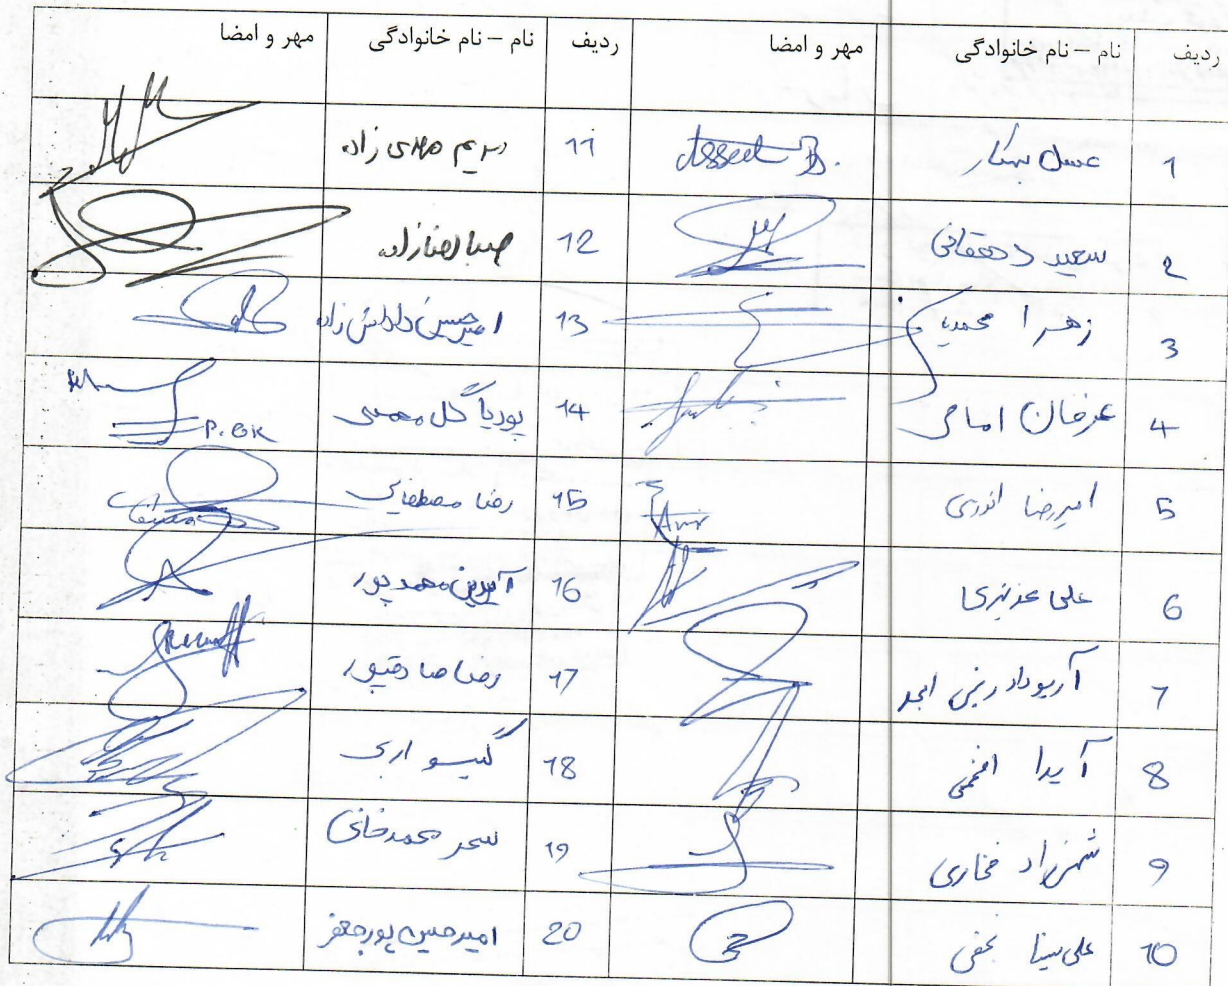 ردیف نام – نام خانوادگی مهر و امضا ردیف نام – نام خانوادگی مهر و امضا
1 عسل 11 مریم مهدی زاده
2 سعید دهقانی 12 صبا رضازاده
3 زهرا محمدی 13 امیرحسین داداش زاده
4 عرفان امامی 14 پوریا گل محمدی P.GK
5 امیررضا 15 رضا مصطفایی
6 علی عزیزی 16 آیدین محمدپور
7 آریوداد رنجی امجد 17 رضا صادقپور
8 آیدا افخمی 18 گیسو
9 شهرزاد فخاری 19 سحر محمدخانی
10 علی سینا نجفی 20 امیرحسین پورجعفر